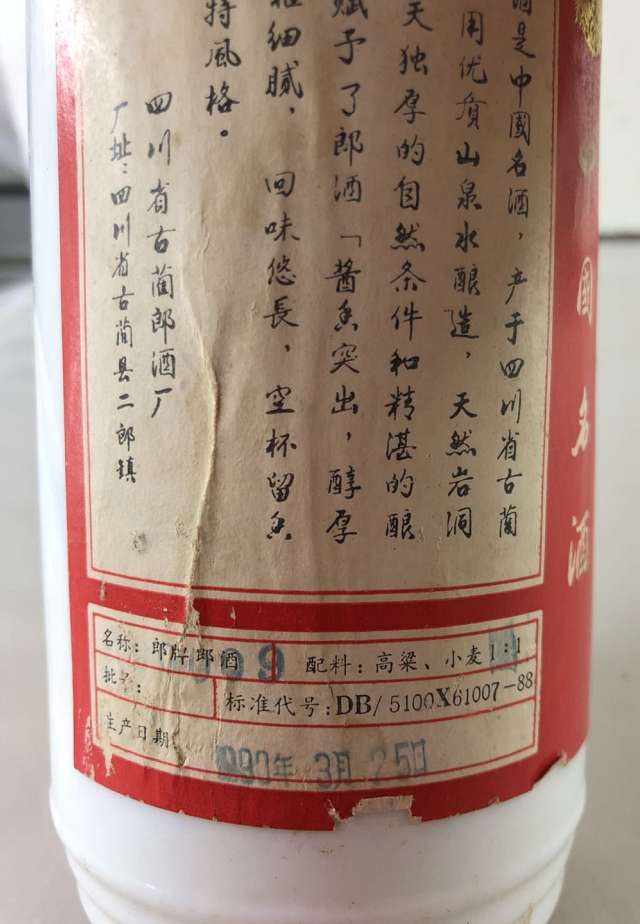 中国名酒
酒是中國名酒，产于四川省古蔺
用优质山泉水酿造，天然岩洞
天独厚的自然条件和精湛的酿
赋予了郎酒「醬香突出，醇厚
细腻，回味悠長，空杯留香
特風格。
四川省古蔺郎酒厂
厂址：四川省古蔺县二郎镇
名称：郎牌郎酒
配料：高粱、小麦1：1
批号：
009
标准代号：DB/5100X61007-88
生产日期
1990年3月25日